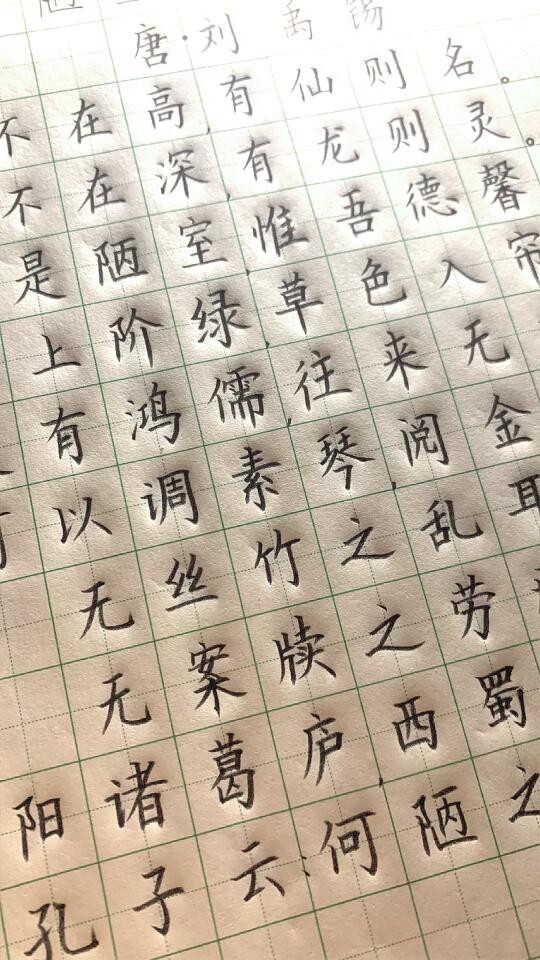 陋
唐·刘禹锡
不在高,有仙则名。
不在深,有龙则灵。
是陋室,惟吾德馨
上阶绿,草色入帘
有鸿儒,往来无
以调素琴,阅金
无丝竹之乱耳
无案牍之劳
阳诸葛庐,西蜀
孔子云:何陋之